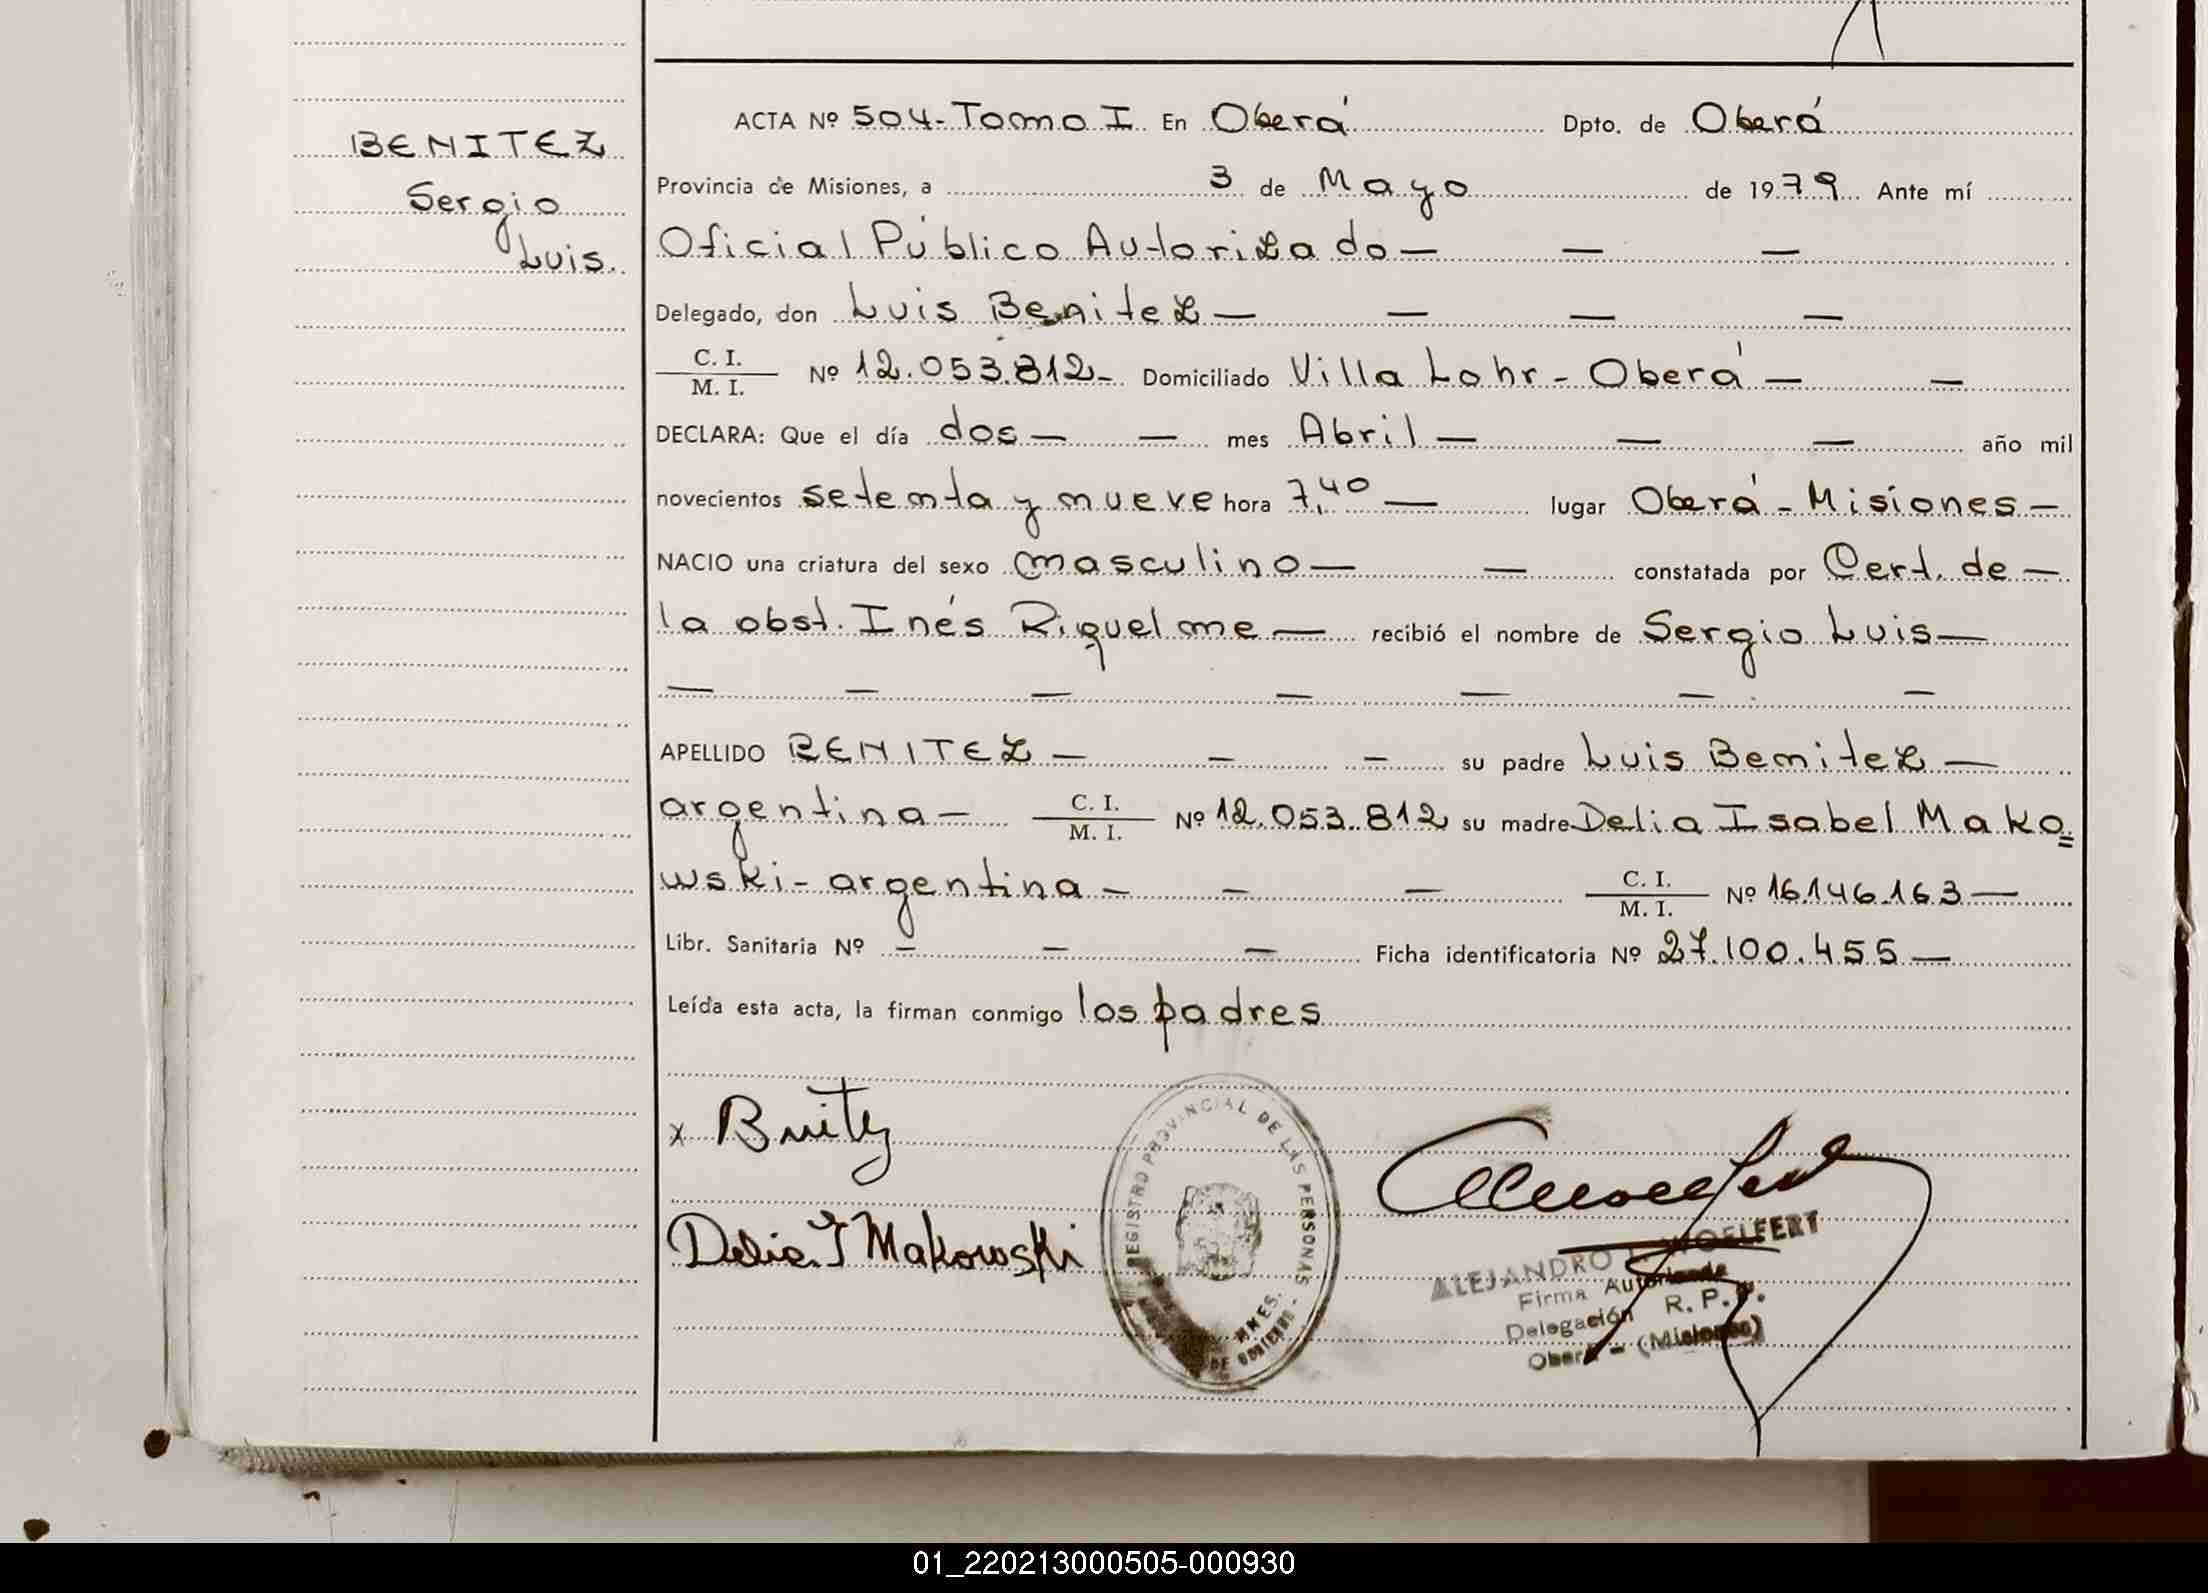 BENITEZ
Sergio
Luis.
ACTA Nº 504-Tomo I En Oberá Dpto. de Oberá
Provincia de Misiones, a 3 de Mayo de 1979 Ante mí
Oficial Público Autorizado — — —
Delegado, don Luis Benitez — — — —
C. I.
M. I. Nº 12.053.812- Domiciliado Villa Lohr - Oberá — —
DECLARA: Que el día dos — — mes Abril — — — año mil
novecientos setenta y nueve hora 7,40 — lugar Oberá - Misiones —
NACIO una criatura del sexo masculino — — constatada por Cert. de —
la obst. Inés Riquelme — recibió el nombre de Sergio Luis —
— — — — — — —
APELLIDO BENITEZ — — — su padre Luis Benitez —
argentina — C. I.
M. I. Nº 12.053.812 su madre Delia Isabel Mako=
wski - argentina — — — C. I.
M. I. Nº 16.146.163 —
Libr. Sanitaria Nº — — — Ficha identificatoria Nº 27.100.455 —
Leída esta acta, la firman conmigo los padres
x Benitez
Delia I Makowski
REGISTRO PROVINCIAL DE LAS PERSONAS -
MNES.
DE GOBIERNO -
ALEJANDRO WOELFERT
Firma Autorizada
Delegación R. P. P.
Oberá - (Misiones)
01_220213000505-000930